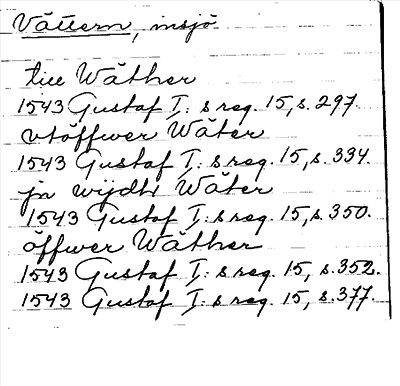 Vättern, insjö
till Wäther
1543 Gustaf I:s reg. 15, s. 297.
vtöffwer Wäter
1543 Gustaf I:s reg. 15, s. 334.
jn wijdh Wäter
1543 Gustaf I:s reg. 15, s. 350.
öffwer Wäther
1543 Gustaf I:s reg. 15, s. 352.
1543 Gustaf I:s reg. 15, s. 377.